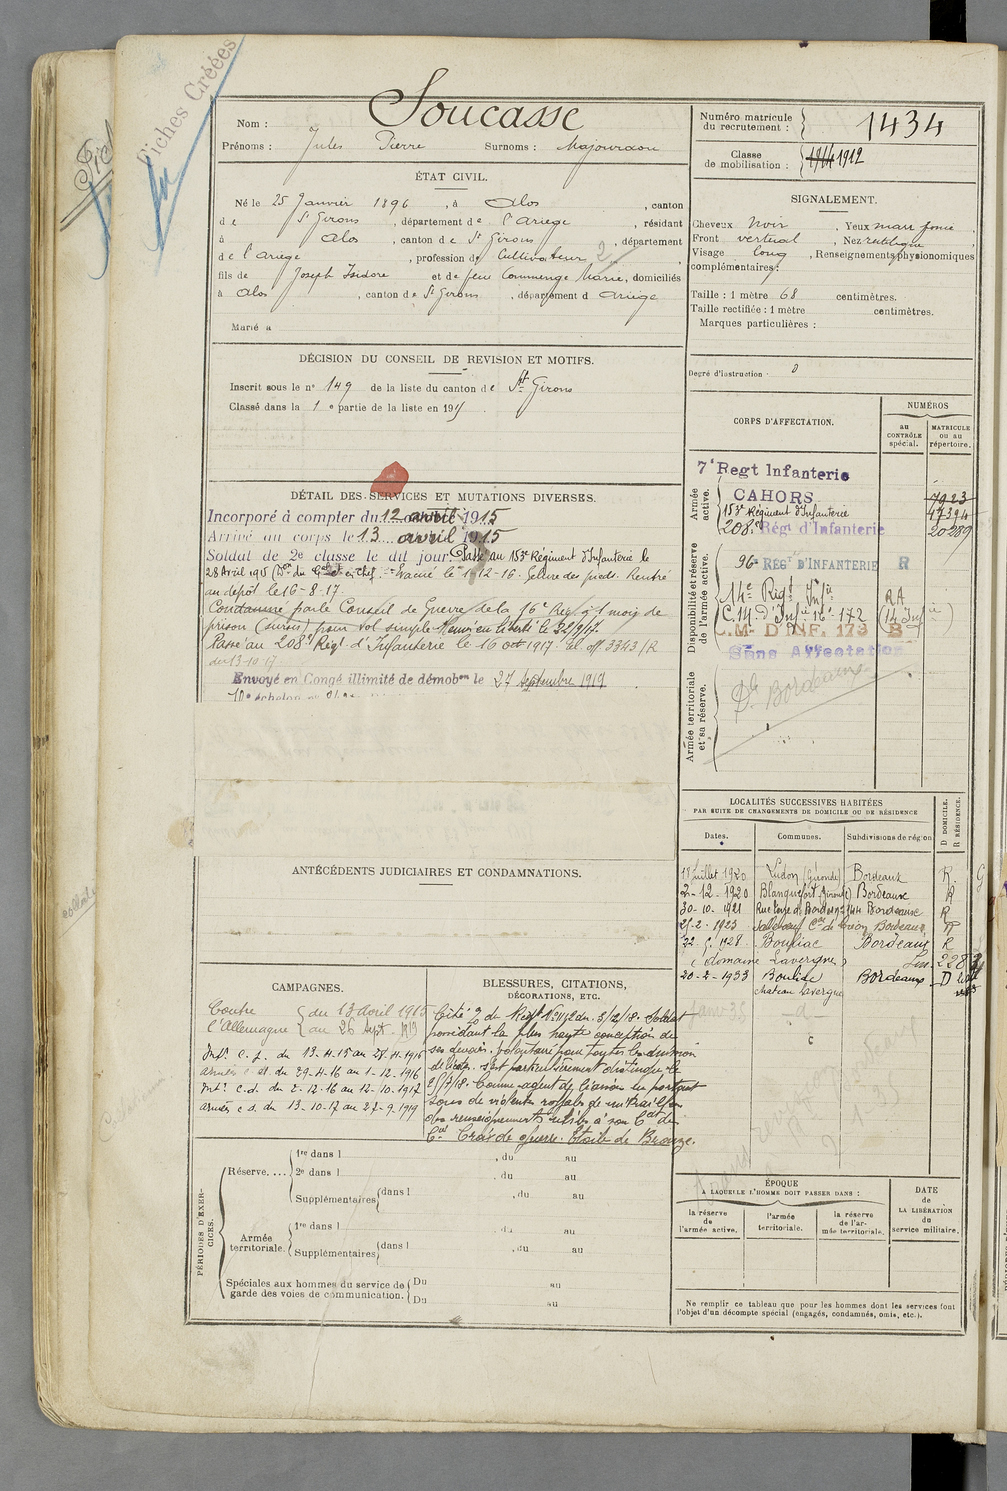 Fiches Créées
Nom : Soucasse
Prénoms : Jules Pierre Surnoms : Majourdaou
Numéro matricule du recrutement : 1434
Classe de mobilisation : 1914 1912
ÉTAT CIVIL.
Né le 25 Janvier 1896, à Alos, canton
de St Girons, département de l'Ariège, résidant
à Alos, canton de St Girons, département
de l'Ariège, profession de Cultivateur 2
fils de Joseph Isidore et de feu Commenge Marie, domiciliés
à Alos, canton de St Girons, département d Ariège
Marié à
SIGNALEMENT.
Cheveux Noir, Yeux marr foncé,
Front vertical, Nez rectiligne,
Visage long, Renseignements physionomiques
complémentaires :
Taille : 1 mètre 68 centimètres.
Taille rectifiée : 1 mètre centimètres.
Marques particulières :
Degré d'instruction : 0
DÉCISION DU CONSEIL DE REVISION ET MOTIFS.
Inscrit sous le n° 149 de la liste du canton de St Girons
Classé dans la 1e partie de la liste en 1915
DÉTAIL DES SERVICES ET MUTATIONS DIVERSES.
Incorporé à compter du 12 avril 1915
Arrivé au corps le 13 avril 1915
Soldat de 2e classe le dit jour. Passé au 153e Régiment d'Infanterie le
28 Avril 1915 (Don du Gal Ct en Chef. Evacué le 1-12-16. Gelure des pieds. Rentré
au dépôt le 16-8-17.
Condamné par le Conseil de Guerre de la 16e Reg. à 1 mois de
prison (sursis) pour vol simple. Remis en liberté le 22/9/17.
Passé au 208e Régt d'Infanterie le 16 oct 1917. 3343/R
du 13-10-17.
Envoyé en Congé illimité de démobon le 27 Septembre 1919
10e échelon
CORPS D'AFFECTATION.
NUMÉROS
au CONTRÔLE spécial.
MATRICULE ou au répertoire.
Armée active.
7e Regt Infanterie
CAHORS 7923
153e Régiment d'Infanterie 47394
208e Rég. d'Infanterie 20289
Disponibilité et réserve de l'armée active.
96e REGT D'INFANTERIE R
14e Régt Infie RA
C.M. d'Infie 16e 172 (14 Infie)
C.M. D'INF. 173 B
Sans Affectation
Armée territoriale et sa réserve.
Dt Bordeaux
LOCALITÉS SUCCESSIVES HABITÉES
PAR SUITE DE CHANGEMENTS DE DOMICILE OU DE RÉSIDENCE
Dates. Communes. Subdivisions de région D DOMICILE. R RÉSIDENCE.
Juillet 1920 Ludon (Gironde) Bordeaux R
2-12-1920 Blanquefort (Gironde) Bordeaux R
30-10-1921 Bordeaux R
Bordeaux R
1928 Bouliac Bordeaux R
(domaine Lavergne)
20-2-1933 Bouliac Bordeaux D
chateau Lavergne
ANTÉCÉDENTS JUDICIAIRES ET CONDAMNATIONS.
CAMPAGNES.
Contre l'Allemagne { du 13 Avril 1915
au 26 Sept. 1919
Intr. c.s. du 13-4-15 au 28-4-1916
armées c.d. du 29-4-16 au 1-12-1916
Intr. c.d. du 2-12-16 au 12-10-1917
armées c d. du 13-10-17 au 27-9-1919
BLESSURES, CITATIONS, DÉCORATIONS, ETC.
Cité O. du Régt N° 112 du 3/12/18. Soldat
possédant la plus haute conception de
ses devoirs, volontaire pour toutes les missions
délicates. S'est particulièrement distingué le
25/7/18. Comme agent de liaison en portant
sous de violentes rafales de mitrailleuses
des renseignements utiles à son Ct de
Cie. Croix de guerre. Etoile de Bronze.
PÉRIODES D'EXERCICES.
Réserve.... 1re dans l , du au
2e dans l , du au
Supplémentaires dans l , du au
Armée territoriale. 1re dans l , du au
Supplémentaires dans l , du au
Spéciales aux hommes du service de garde des voies de communication. Du au
Du au
ÉPOQUE
A LAQUELLE L'HOMME DOIT PASSER DANS :
la réserve de l'armée active.
l'armée territoriale.
la réserve de l'armée territoriale.
DATE de LA LIBÉRATION du service militaire.
Ne remplir ce tableau que pour les hommes dont les services font
l'objet d'un décompte spécial (engagés, condamnés, omis, etc.).